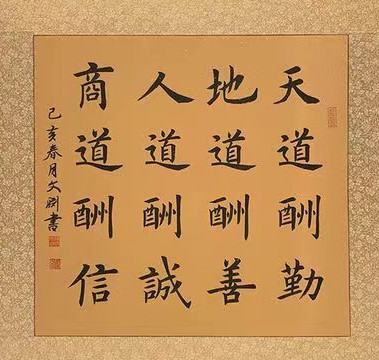 天道酬勤
地道酬善
人道酬誠
商道酬信
己亥春月文剛書